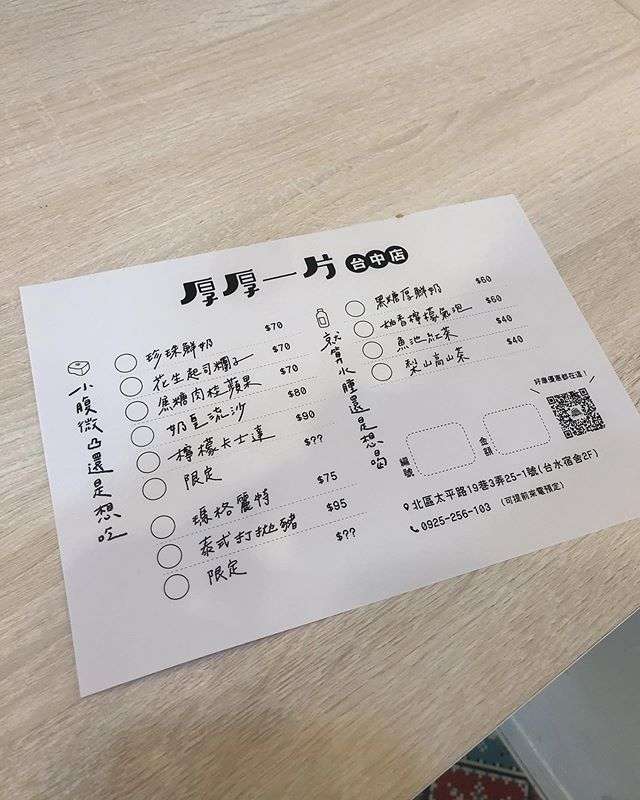 厚厚一片 台中店
小腹微凸還是想吃
珍珠鮮奶 $70
花生起司糷子 $70
焦糖肉桂蘋果 $70
奶皇流沙 $80
檸檬卡士達 $90
限定 $??
瑪格麗特 $75
泰式打拋豬 $95
限定 $??
就算水腫還是想喝
黑糖厚鮮奶 $60
柚香檸檬氣泡 $60
魚池紅茶 $40
梨山高山茶 $40
好康優惠都在這!
編號
金額
北區太平路19巷3弄25-1號(台水宿舍2F)
0925-256-103 (可提前來電預定)